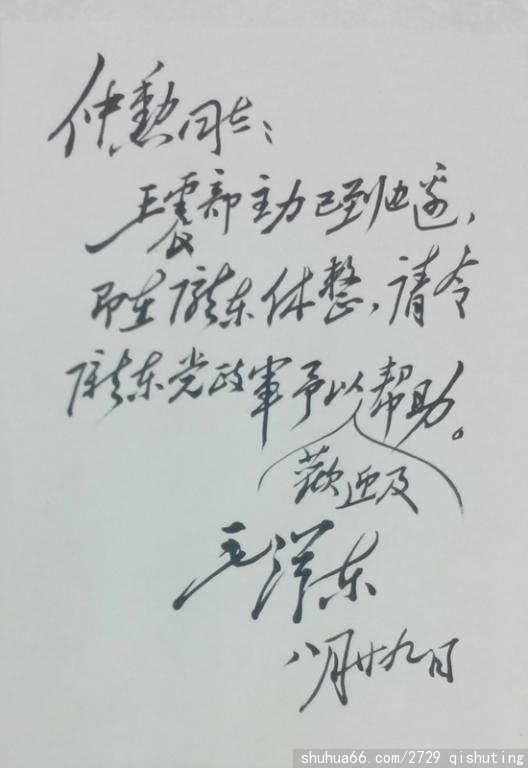 仲勳同志：
王震部主力已到边邊，
即在陇东休整，请令
陇东党政軍予以帮助。
歡迎及
毛澤东
八月廿九日
shuhua66.com/2729 qishuting